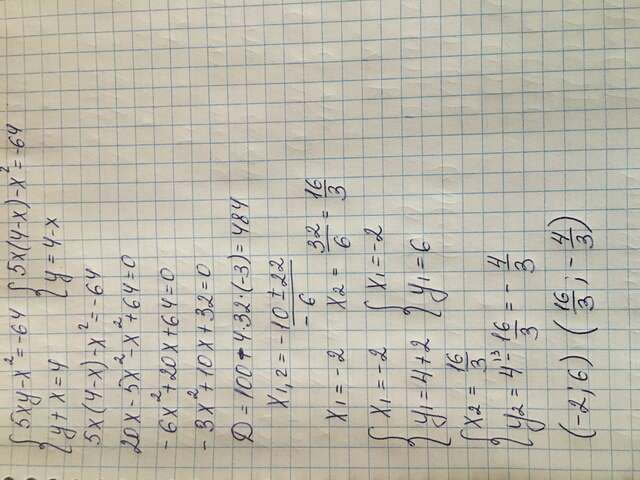 {5xy-x²=-64 {5x(4-x)-x²=-64
{y+x=4 {y=4-x
5x(4-x)-x²=-64
20x-5x²-x²+64=0
-6x²+20x+64=0
-3x²+10x+32=0
D=100-4·32·(-3)=484
x1,2=-10±22/-6
x1=-2 x2=32/6=16/3
{x1=-2 {x1=-2
{y1=4+2 {y1=6
{x2=16/3
{y2=4-16/3=-4/3
(-2;6) (16/3;-4/3)